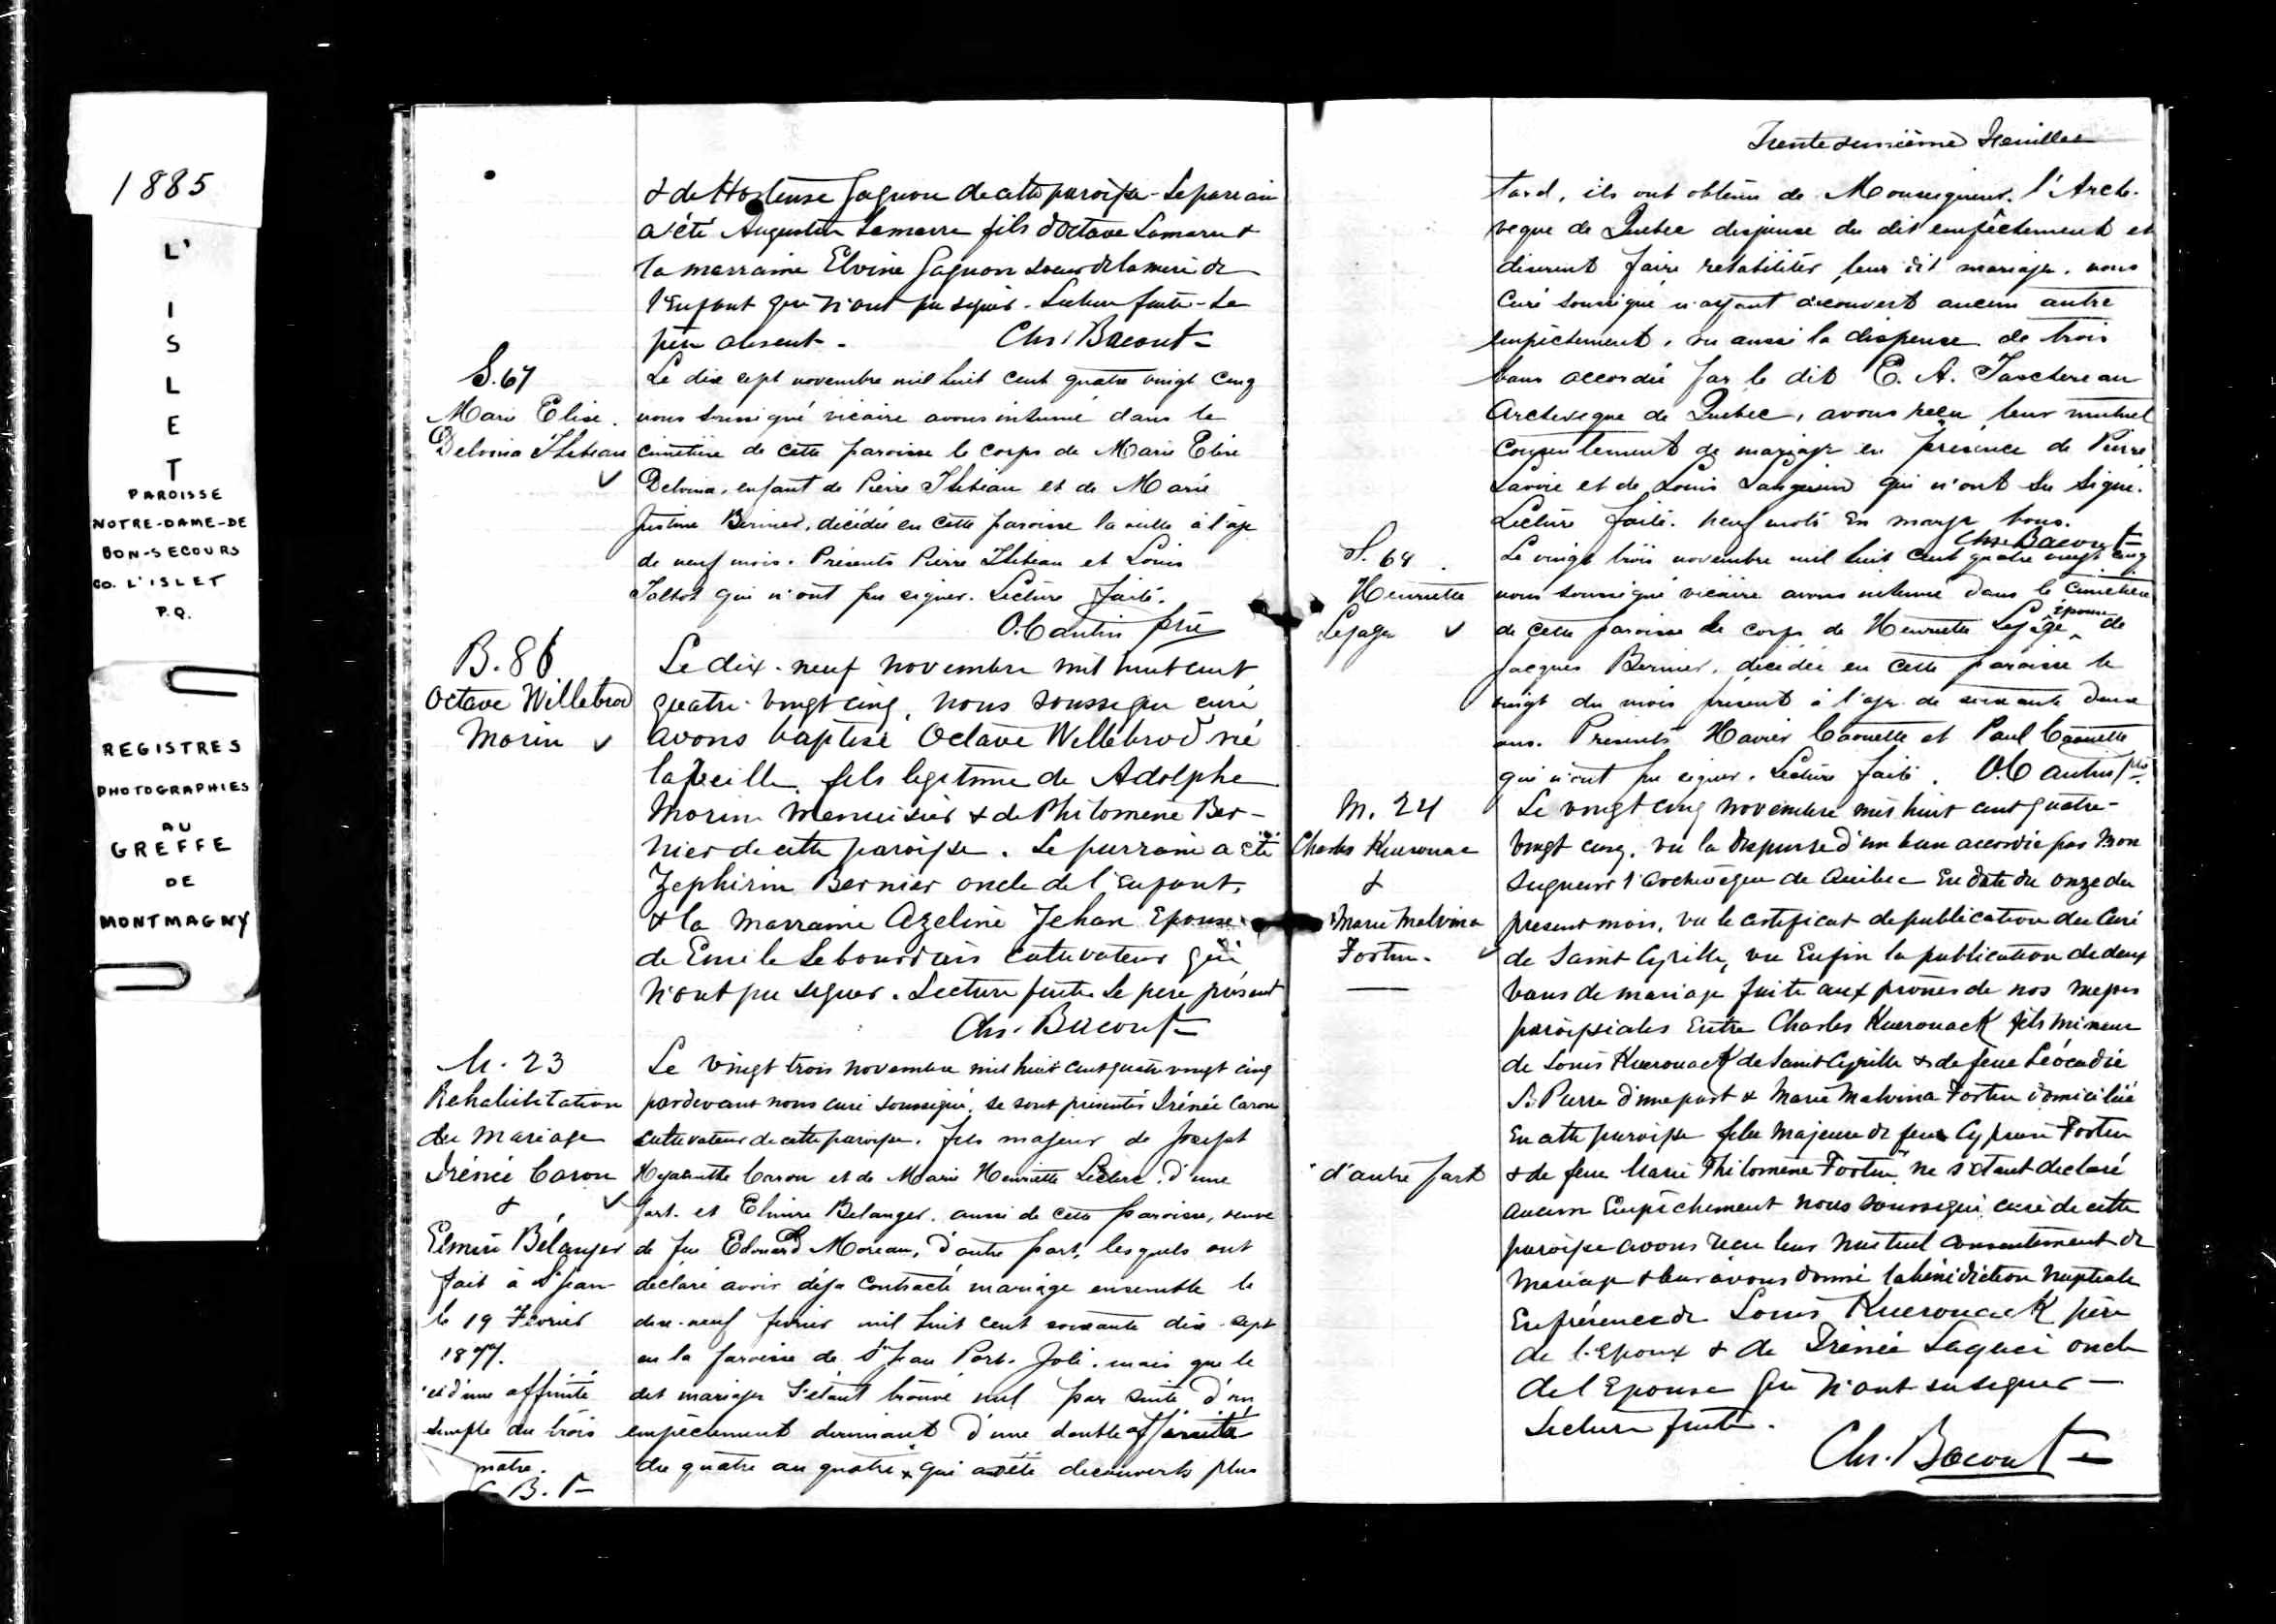 1885
L'
I
S
L
E
T
PAROISSE
NOTRE-DAME-DE
BON-SECOURS
CO. L'ISLET
P.Q.
REGISTRES
PHOTOGRAPHIES
AU
GREFFE
DE
MONTMAGNY
& de Hortense Gagnon de cette paroisse - Le parrain
a été Augustin Lamarre fils d'Octave Lamarre &
la marraine Elvine Gagnon soeur de la mere de
l'Enfant qui n'ont pu signer. Lecture faite - Le
père absent. Chs. Bacourt
S. 67
Marie Elise
Delvina
Le dix sept novembre mil huit cent quatre vingt cinq
nous soussigné vicaire avons inhumé dans le
cimetière de cette paroisse le corps de Marie Elise
Delvina, enfant de Pierre et de Marie
Justine Bernier, décédée en cette paroisse la veille à l'age
de neuf mois. Présents Pierre et Louis
Talbot qui n'ont pu signer. Lecture faite.
O. Cantin ptre
B. 86
Octave Willebrod
Morin
Le dix-neuf novembre mil huit cent
quatre-vingt cinq, nous soussigné curé
avons baptisé Octave Willebrod né
la veille, fils legitime de Adolphe
Morin menuisier & de Philomène Ber-
nier de cette paroisse. Le parrain a été
Zephirin Bernier oncle de l'Enfant,
& la marraine Azeline Jehan Epouse
de Emile Lebourdais cultivateur qui
n'ont pu signer. Lecture faite Le pere présent
Chs. Bacourt
M. 23
Rehabilitation
du Mariage
Irénée Caron
&
Elmire Bélanger
fait à St Jean
le 19 Fevrier
1877.
et d'une affinité
simple du trois
C. B. P
Le vingt trois novembre mil huit cent quatre vingt cinq
pardevant nous curé soussigné, se sont présentés Irénée Caron
cultivateur de cette paroisse, fils majeur de Joseph
Hyacinthe Caron et de Marie Henriette Leclerc d'une
part, et Elmire Belanger, aussi de cette paroisse, veuve
de feu Edouard Moreau, d'autre part, lesquels ont
déclaré avoir déja contracté mariage ensemble le
dix-neuf fevrier mil huit cent soixante dix-sept
en la paroisse de St Jean Port-Joli, mais que le
dit mariage s'étant trouvé nul par suite d'un
empêchement dirimant d'une double affinité
du quatre au quatre x qui a été decouverts plus
Trente deuxième Feuillet
tard, ils ont obtenu de Monseigneur l'Arche-
vêque de Quebec dispense du dit empêchement et
désirent faire rehabiliter leur dit mariage, nous
Curé soussigné n'ayant découvert aucun autre
empêchement, vu aussi la dispense de trois
bans accordée par le dit E. A. Taschereau
Archeveque de Quebec, avons reçu leur mutuel
consentement de mariage en présence de Pierre
Lavoie et de Louis Langevin qui n'ont su signé.
Lecture faite. neuf mots en marge bons.
Chs. Bacourt
S. 68
Henriette
Lepage
Le vingt trois novembre mil huit cent quatre vingt cinq
nous soussigné vicaire avons inhumé dans le cimetière
de cette paroisse le corps de Henriette Lepage épouse de
Jacques Bernier, décédée en cette paroisse le
vingt du mois présent à l'age de soixante deux
ans. Présents Xavier Caouette et Paul Caouette
qui n'ont pu signer. Lecture faite. O. Cantin ptre
M. 24
Charles Kuerouac
&
Marie Malvina
Fortin.
Le vingt cinq novembre mil huit cent quatre-
vingt cinq, vu la dispense d'un ban accordée par Mon
Seigneur l'Archevêque de Québec En date du onze du
present mois, vu le certificat de publication du Curé
de Saint Cyrille, vu Enfin la publication de deux
bans de mariage faite aux prônes de nos messes
paroissiales Entre Charles Kuerouack fils mineur
de Louis Kuerouack de Saint Cyrille & de feue Léocadie
St. Pierre d'une part & Marie Malvina Fortin domiciliée
En cette paroisse fille Majeure de feu Cyprien Fortin
"d'autre part
& de feue Marie Philomène Fortin" ne s'étant declaré
aucun Empêchement nous soussigné curé de cette
paroisse avons reçu leur mutuel consentement de
Mariage & leur avons donné la bénédiction nuptiale
En présence de Louis Kuerouack père
de l'Epoux & de Irénée Lagacé oncle
de l'Epouse qui n'ont su signer -
Lecture faite.
Chs. Bacourt